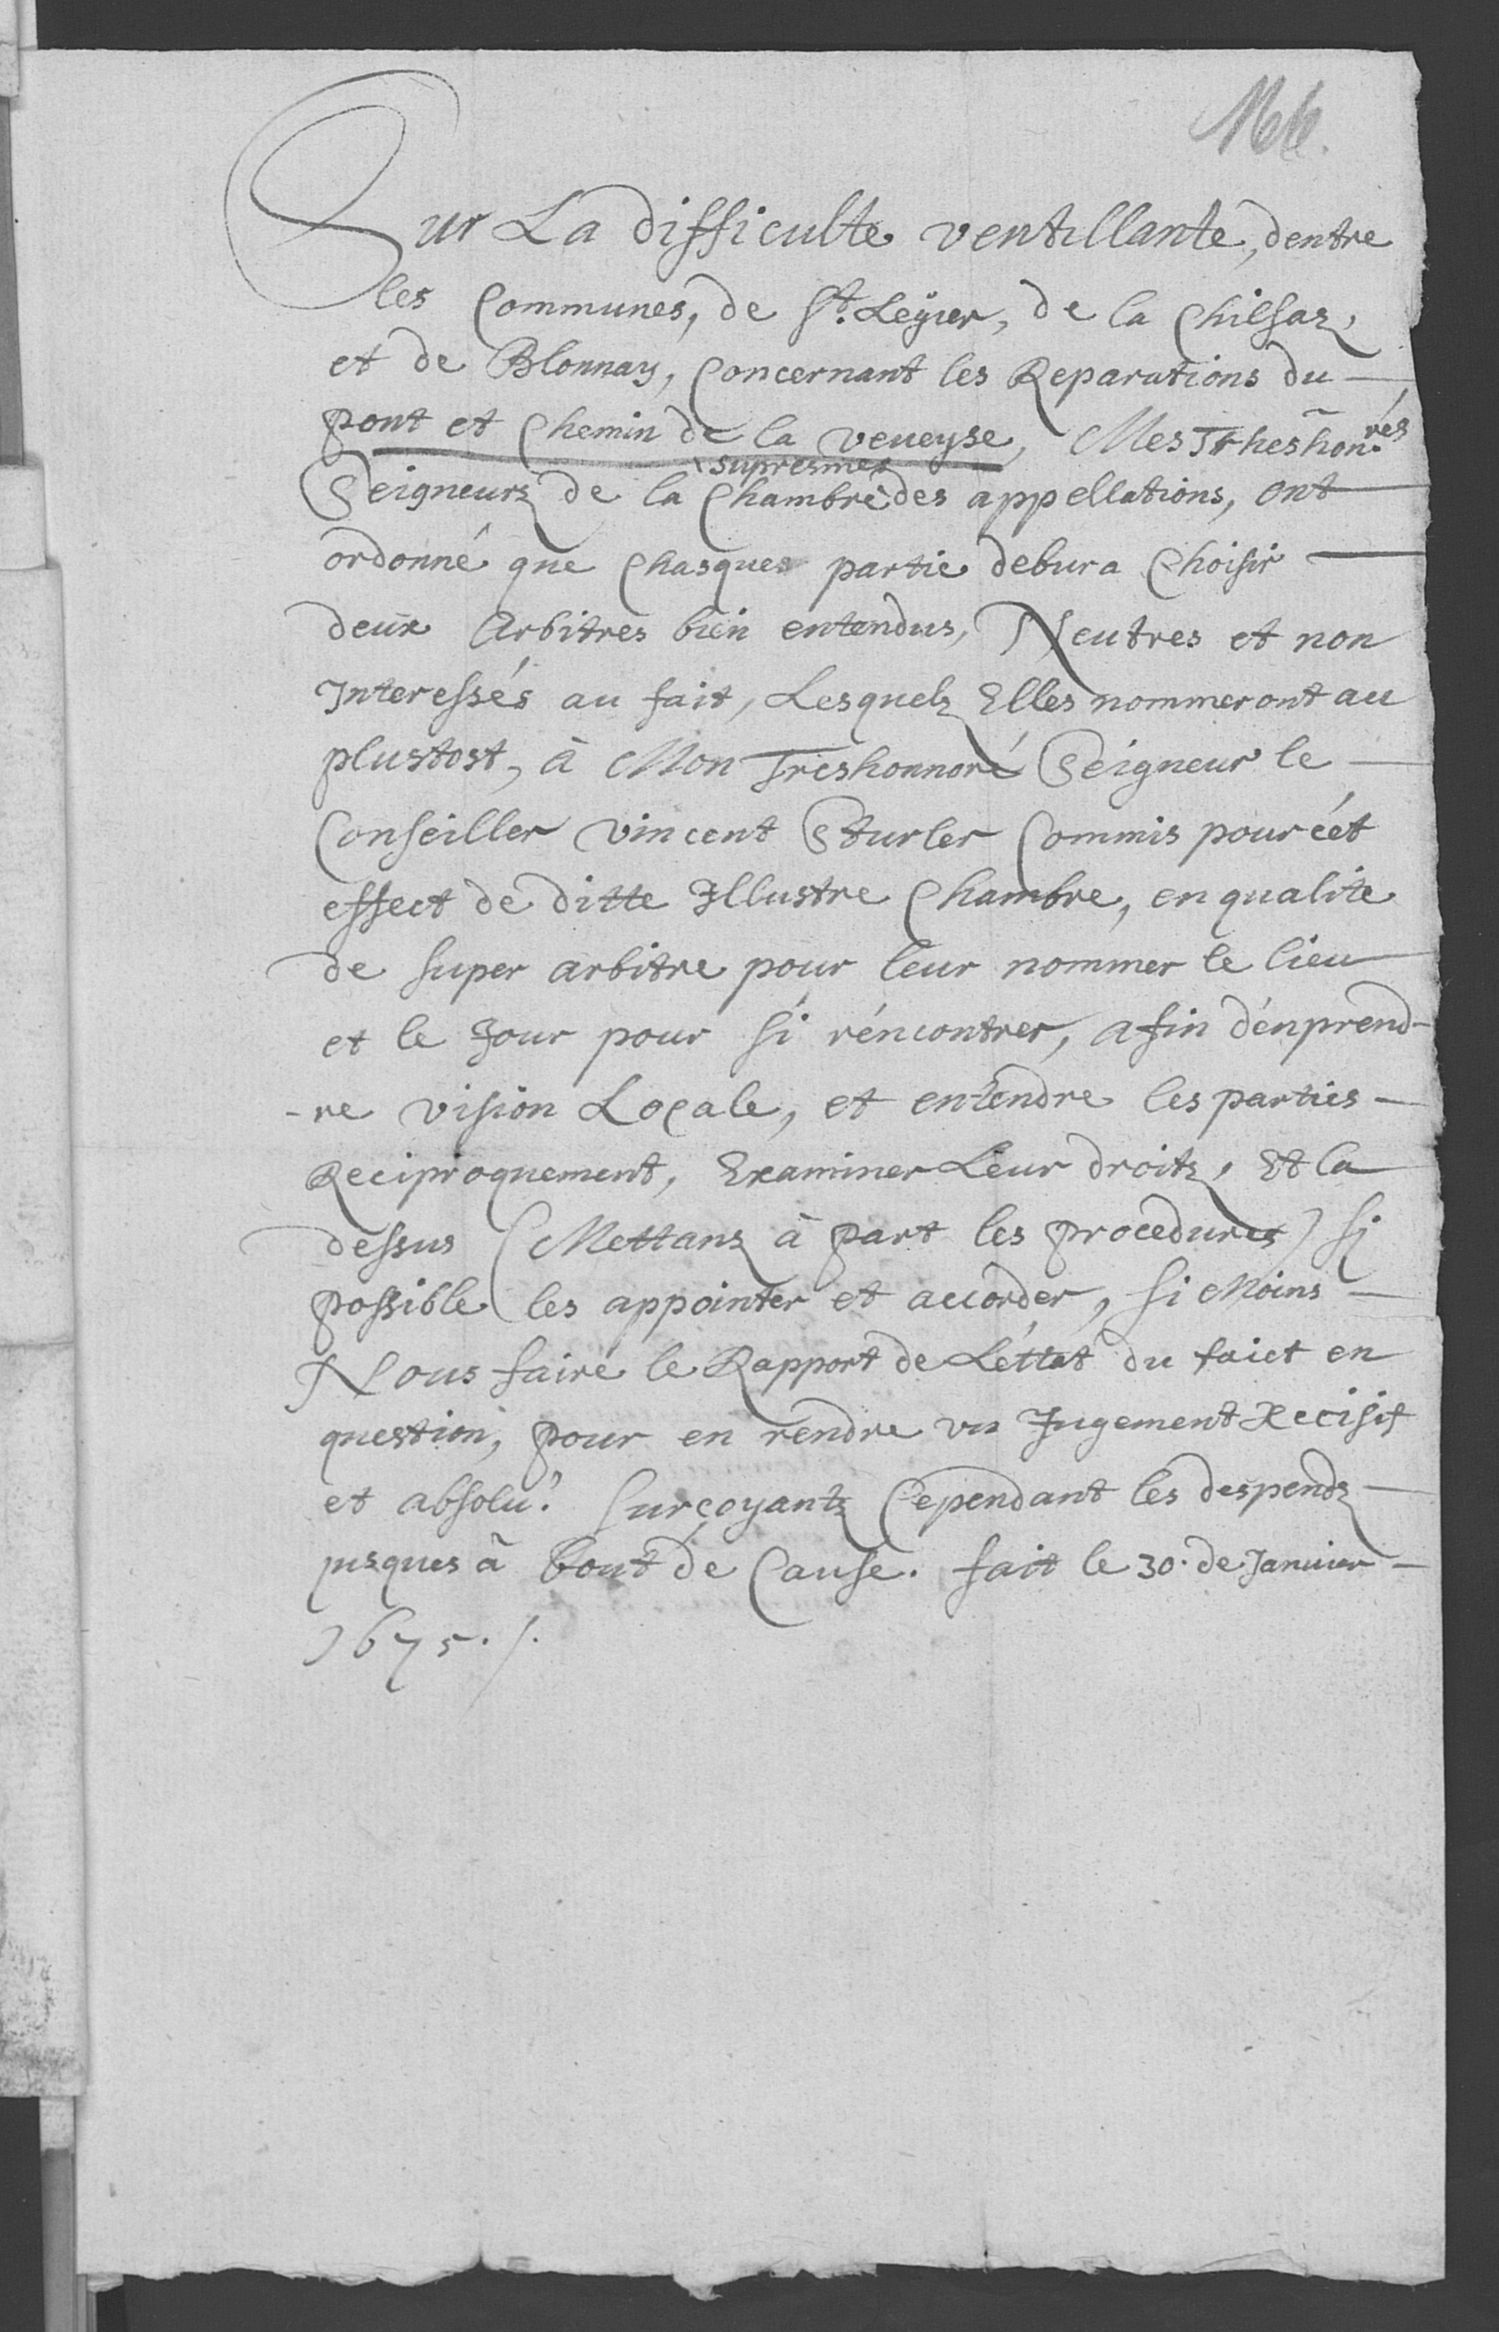 Sur La difficulte ventillante, dentre
les Communes, de St. Legier, de la Chiesaz,
et de Blonnay, Concernant les Reparations du
pont et Chemin de la veveyse, Mes Trheshon̅.rés
supresme
Seigneurs de la Chambre des appellations, ont
ordonné que Chasques partie debura Choisir
deux Arbitres bien entendus, Neutres et non
Interessés au fait, Lesquelz Elles nommeront au
plustost, à Mon Treshonnoré Seigneur le
Conseiller vincent Sturler Commis pour cét
effect de ditte Illustre Chambre, en qualite
de super arbitre pour leur nommer le lieu
et le Jour pour si réncontrer, afin d'énprend-
-re vision Locale, et entendre les parties
Reciproquement, Examiner Leur droitz, Et la
dessus (Mettans à part les procedures) si
possible les appointer et accorder, si Moins
Nous faire le Rapport de Léttat du faict en
question, pour en rendre vn Jugement Decisif
et absolu. Surçoyantz Cependant les despendz
jusques à bout de Cause. fait le 30. de Januier
1675./.